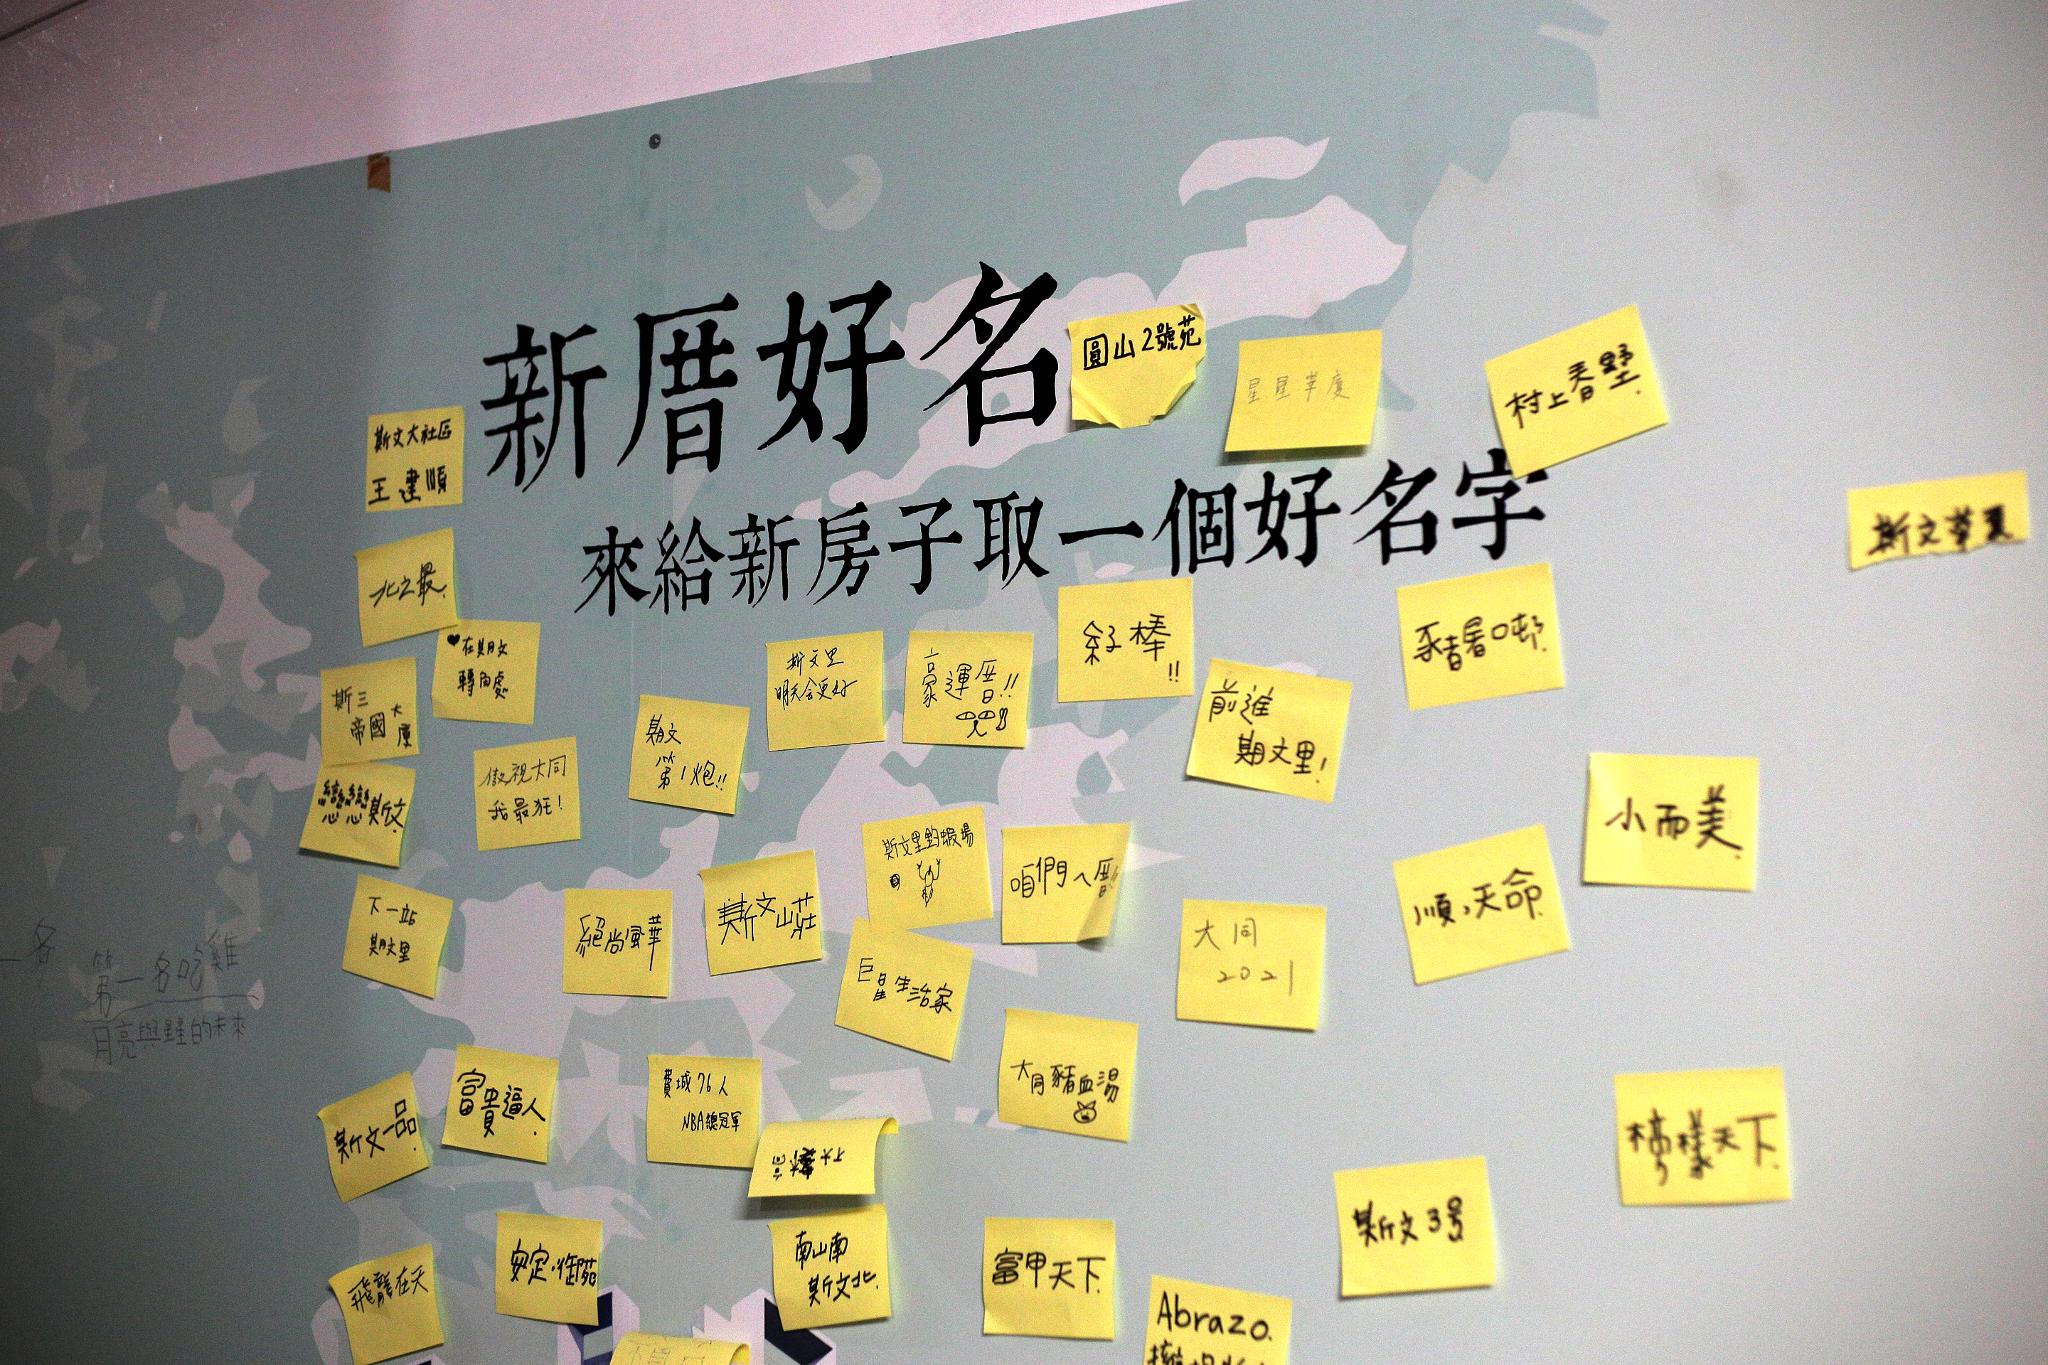 新厝好名
來給新房子取一個好名字
圓山2號苑
星星半度
村上春墅.
斯文大社區
王建順
北之最.
♥在斯文
轉角處
斯三
帝國大廈
戀戀斯文
傲視大同
我最狂!
斯文
第1炮!!
斯文里
明天会更好
豪運厝!!
紅棒
!!
前進
斯文里!
小而美.
下一站
斯文里
絕尚風華
斯文山莊
斯文里釣蝦場
咱們ㄟ厝!
巨星生活家
大同
2021
順,天命.
第一名吃雞
月亮與星星的未來
斯文一品.
富貴逼人.
費城76人
NBA總冠軍
大同豬血湯
斯文3号
飛龍在天
安定·御苑
南山南
斯文北.
富甲天下.
Abrazo.